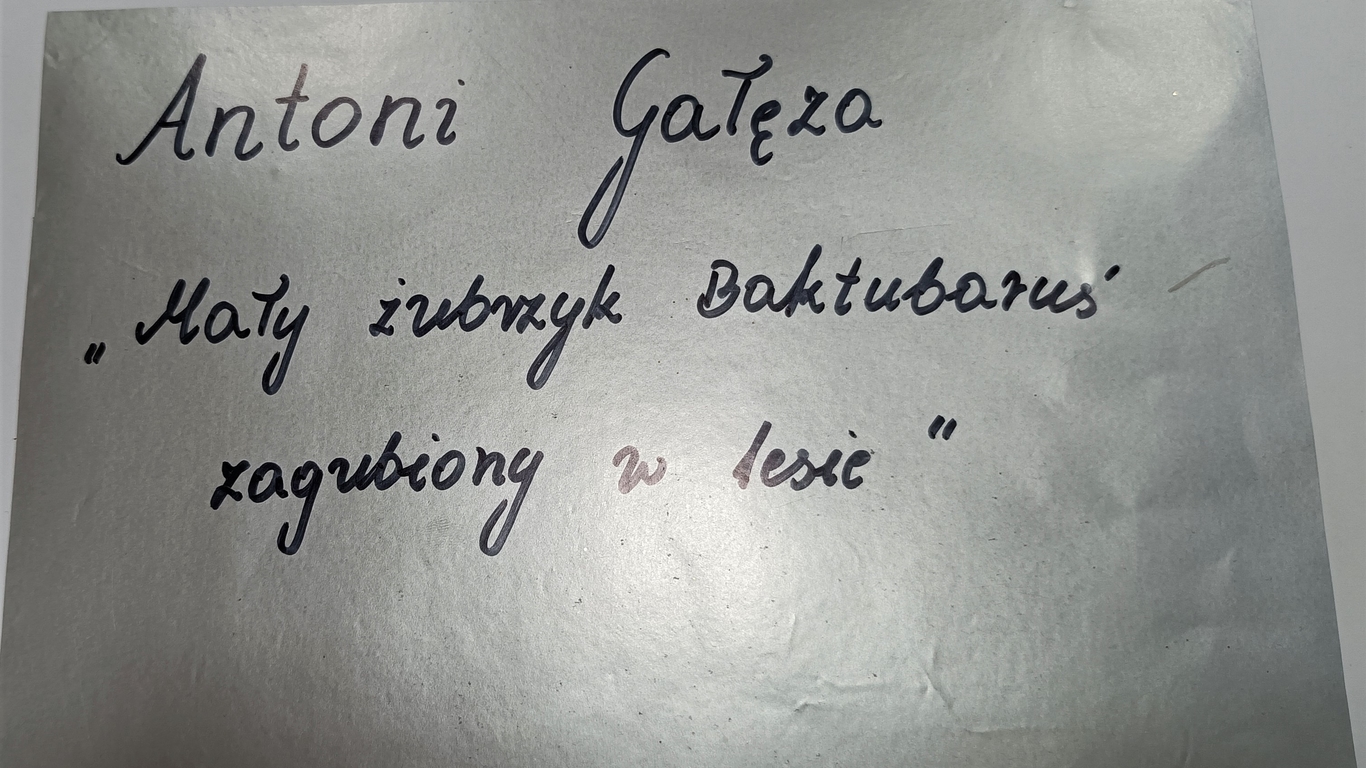 Antoni Gałęza
„Mały żubrzyk Baktubaruś
zagubiony w lesie"